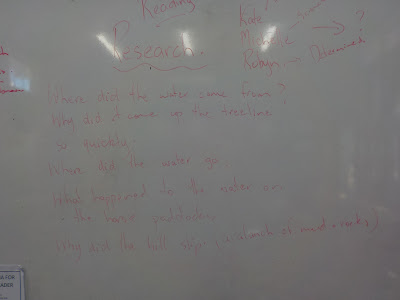 Reading
Research.
Kate
Michelle
?
Robyn → Determined
Where did the water come from?
Why did it come up the treeline
so quickly.
Where did the water go.
What happened to the water on
the horse paddocks.
Why did the hill slip. (avalanch of mud + rocks)